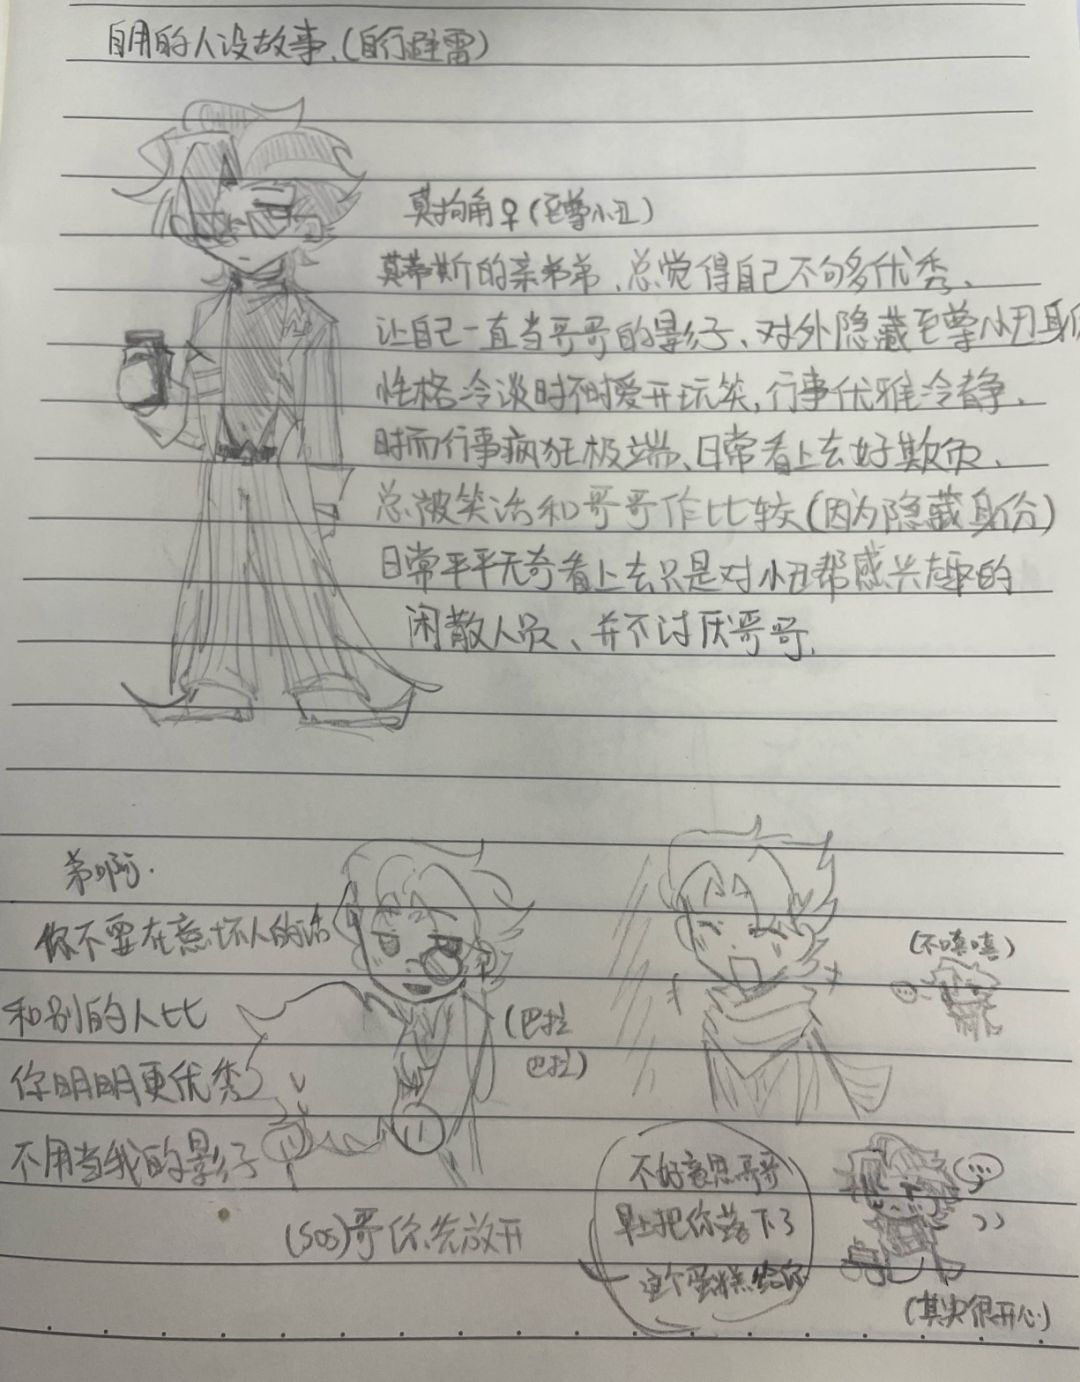 自用的人设故事.(自行避雷)
莫拘角♀(至尊小丑)
莫蒂斯的亲弟弟、总觉得自己不够多优秀、
让自己一直当哥哥的影子、对外隐藏至尊小丑身份
性格冷淡时不时爱开玩笑,行事优雅冷静、
时而行事疯狂极端、日常看上去好欺负、
总被笑话和哥哥作比较(因为隐藏身份)
日常平平无奇看上去只是对小丑帮感兴趣的
闲散人员、并不讨厌哥哥.
弟啊.
你不要在意坏人的话
和别的人比
你明明更优秀
不用当我的影子
(巴拉
巴拉)
(SOS)哥你先放开
(不嘻嘻)
不好意思哥哥
早上把你落下了
这个蛋糕给你
(其实很开心)